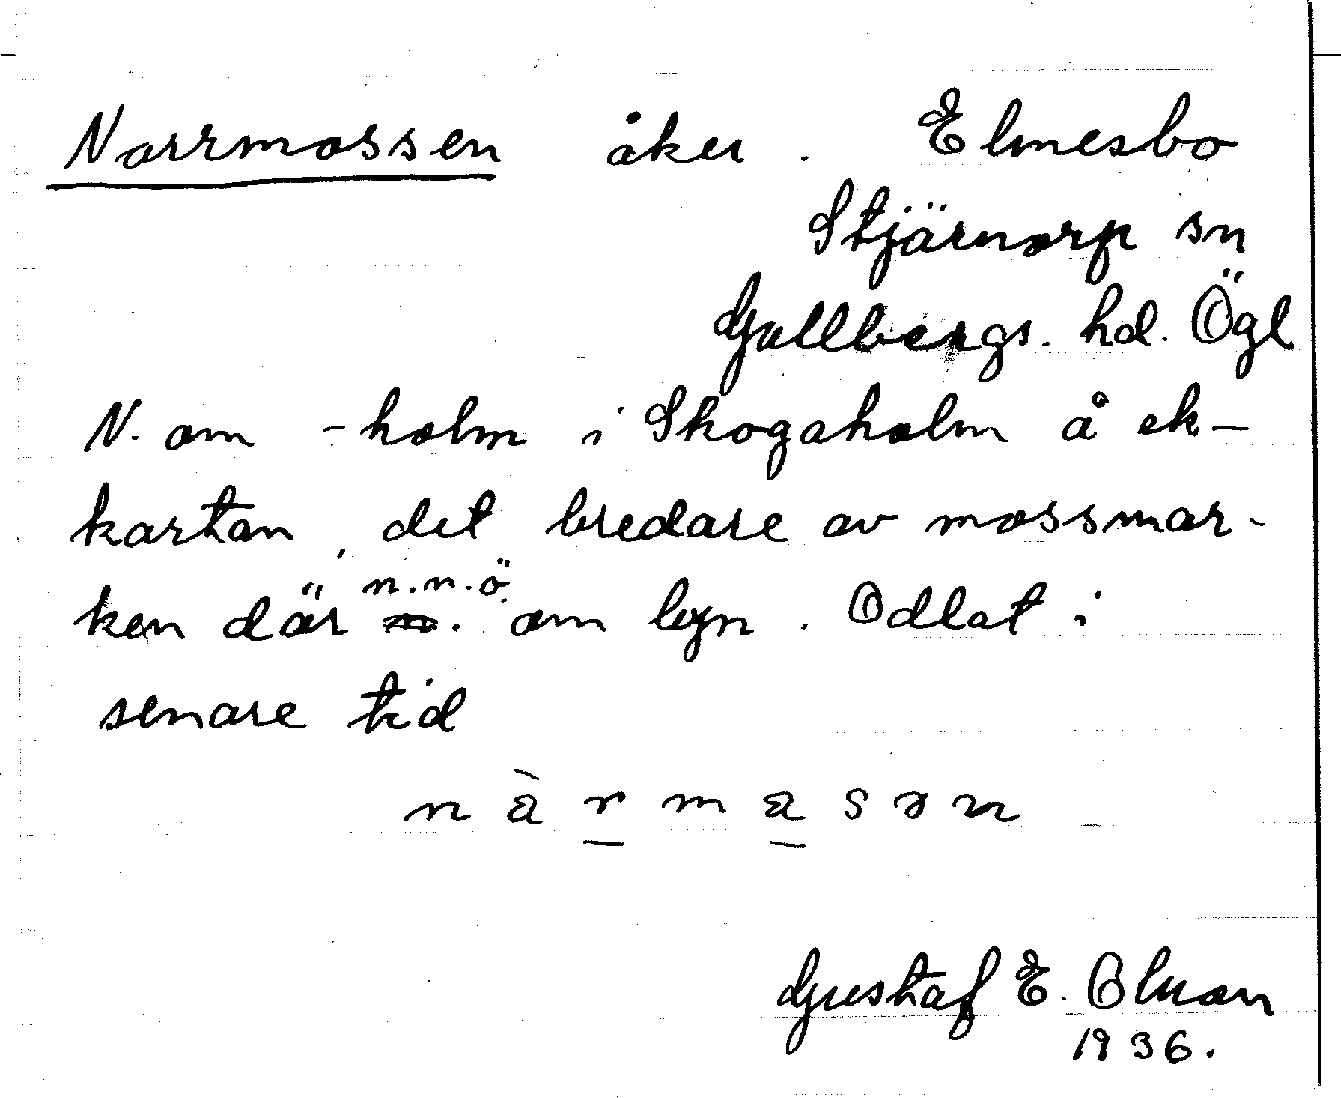 Norrmossen åker. Elmesbo
Stjärnorp sn
Gullbergs. hd. Ögl
N. om -holm i Skogaholm å ek-
kartan, det bredare av mossmar-
ken där n.n.ö. om byn. Odlat i
senare tid
Gustaf E. Olson
1936.